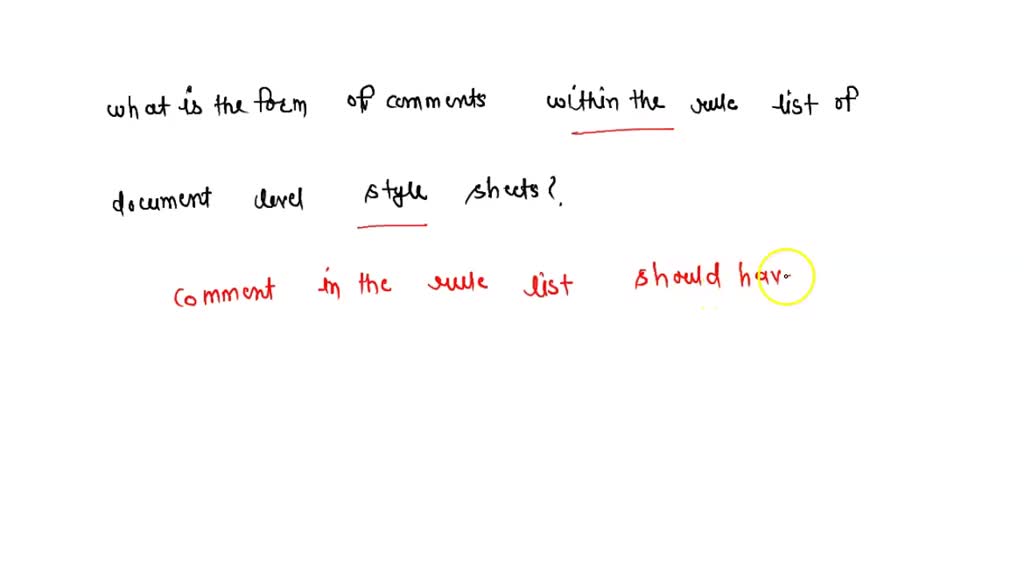 what is the form of comments within the rule list of
document level style sheets?
comment in the rule list should hav